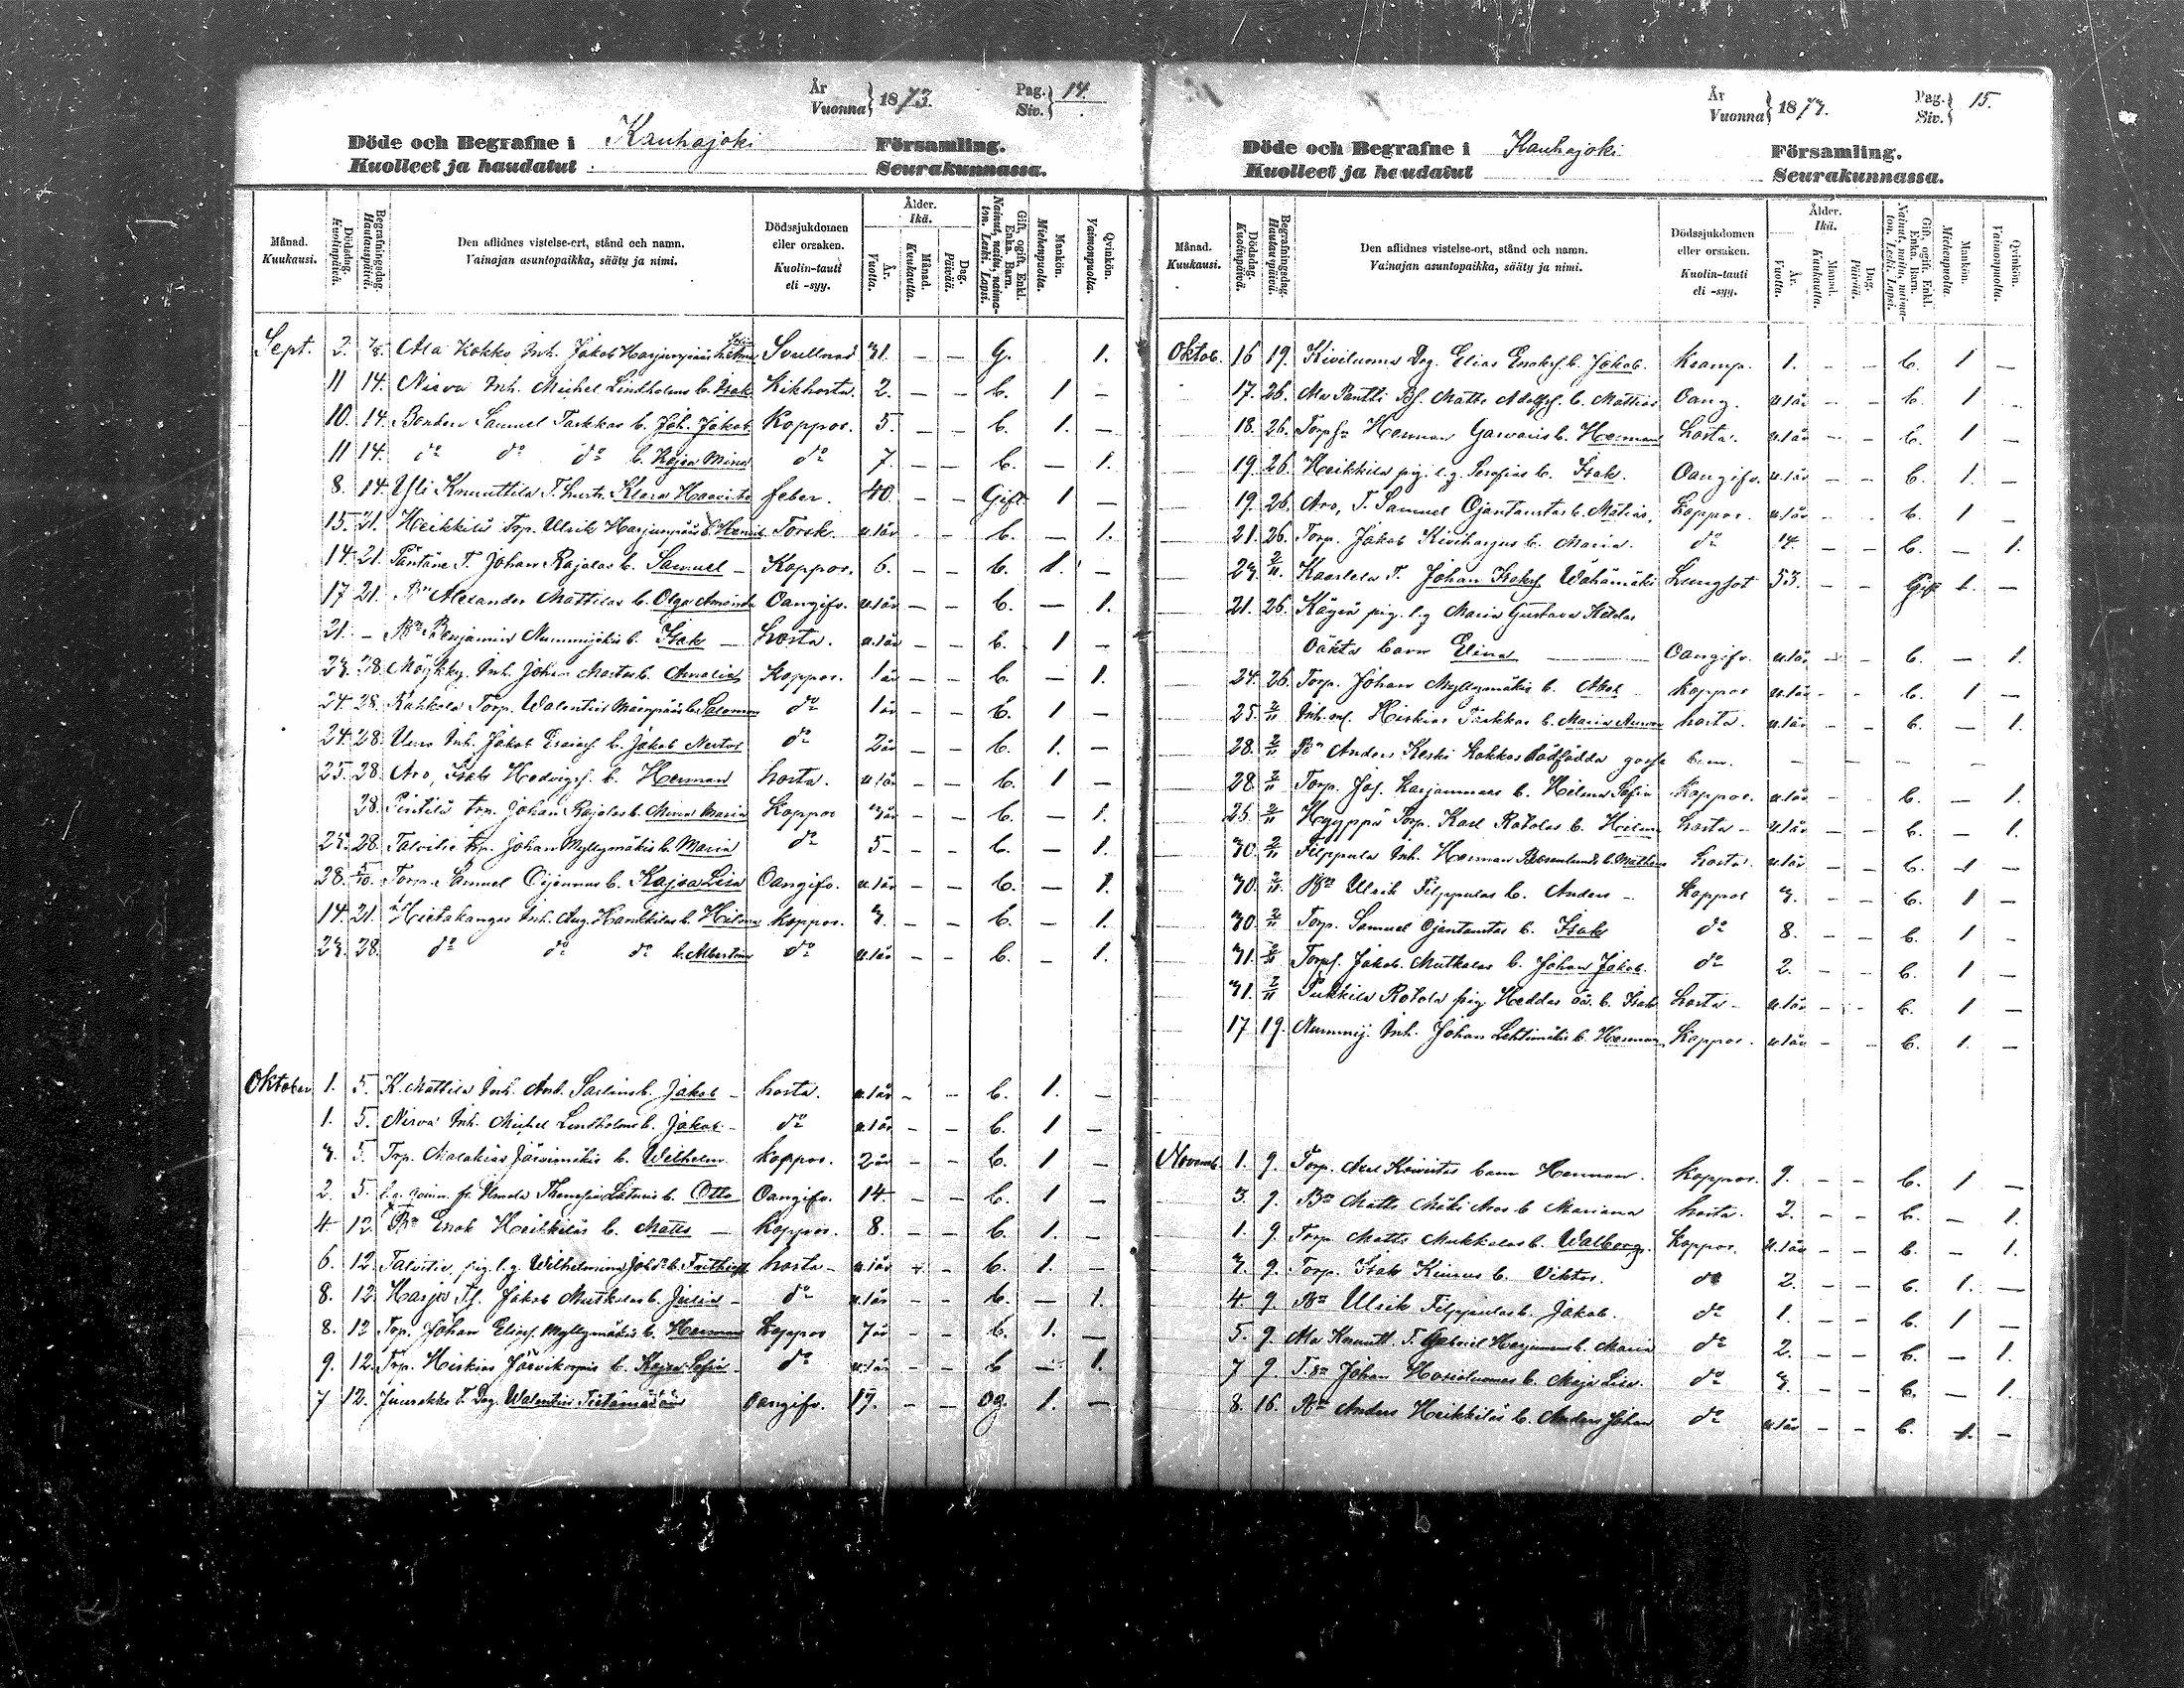 År
Vuonna } 1873. Pag.
Siv. } 14.
Döde och Begrafne i Kauhajoki Församling.
Kuolleet ja haudatut Seurakunnassa.
Månad.
Kuukausi.
Dödsdag.
Kuolinpäivä.
Begrafningsdag.
Hautauspäivä.
Den aflidnes vistelse-ort, stånd och namn.
Vainajan asuntopaikka, sääty ja nimi.
Dödssjukdomen
eller orsaken.
Kuolin-tauti
eli -syy.
Ålder.
Ikä.
År.
Vuotta.
Månad.
Kuukautta.
Dag.
Päivää.
Gift, ogift, Enkl.
Enka. Barn.
Nainut, naitu, naima-
ton. Leski. Lapsi.
Mankön.
Miehenpuolta.
Qvinkön.
Vaimonpuolta.
Sept. 2. Ala Kokko Inh. Jakob Harjunpääs Svullnad 31. — — G. 1.
11 14. Nirva Inh. Michel Lindholms b. Isak Kikhosta 2. — — b. 1 —
10. 14. Bonden Samuel Takkas b. Joh. Jakob Koppor. 5. — — b. 1. —
11 14. do do do b. Kajsa Mina do 7. — — b. — 1.
8. 14 Yli Knuuttila T. hust. Klara feber. 40. — — Gift 1 —
15. 21. Heikkilä Torp. Ulrik Harjunpääs b. Torsk. u. 1 år — — b. — 1.
14. 21. Päntäne T. Johan Rajalas b. Samuel — Koppor. 6. — — b. 1. —
17 21. Bn Alexander Mattilas b. Olga Amanda Oangifv. u. 1 år — — b. — 1.
21. — Bn Benjamin Nummijokis b. Isak — hosta. u. 1 år — — b. 1 —
23. 28. Möykky Inh. Johan b. Amalia Koppor. 1 år — — b. — 1.
24. 28. Kahkola Torp. Walentin b. Salomon do 1 år — — b. 1 —
24. 28. Uuro Inh. Jakob Esaiasf. b. Jakob Nestor do 2 år — — b. 1. —
25. 28. Aro, Isak Hedvigsf. b. Herman hosta. u. 1 år — — b. 1 —
28. Pentilä trp. Johan Rajalas b. Mina Maria Koppor 3 år — — b. — 1.
25. 28. Talvitie trp. Johan Myllymäkis b. Maria do 5 — — b. — 1.
28. 5/10. Torp. Samuel Ojanens b. Kajsa Lisa Oangifv. u. 1 år — — b. — 1.
14. 21. Hietakangas Inh. Aug. b. Hilma koppor. 3. — — b. — 1.
23. 28. do do do b. Albertina do u. 1 år — — b. — 1.
Oktober 1. 5. K. Mattila Inh. And. Sarlins b. Jakob — hosta. u. 1 år — — b. 1. —
1. 5. Nirva Inh. Michel Lindholms b. Jakob — do u. 1 år — — b. 1 —
3. 5. Trp. Malakias Järvimäkis b. Wilhelm koppor. 2 år — — b. 1 —
2. 5 b. Otto Oangifv. 14. — — b. 1 —
4 12. Bn Enok Heikkiläs b. Matts — koppor. 8. — — b. 1. —
6. 12 Talvitie, pig. l. g. Wilhelmina b. Frithiof hosta — u. 1 år — — b. 1. —
8. 12 Harja Tf. Jakob Mutkalas b. Julia — do u. 1 år — — b. — 1.
8. 12 Trp. Johan Eliasf. Myllymäkis b. Herman koppor 7 år — — b. 1. —
9. 12. Trp. Hiskias Järvikorpis b. Kajsa Sofia do u. 1 år — — b — 1.
7 12. Juurakko T. Drg. Walentin Oangifv. 17. — — Og. 1. —
År
Vuonna } 1873. Pag.
Siv. } 15.
Döde och Begrafne i Kauhajoki Församling.
Kuolleet ja haudatut Seurakunnassa.
Månad.
Kuukausi.
Dödsdag.
Kuolinpäivä.
Begrafningsdag.
Hautauspäivä.
Den aflidnes vistelse-ort, stånd och namn.
Vainajan asuntopaikka, sääty ja nimi.
Dödssjukdomen
eller orsaken.
Kuolin-tauti
eli -syy.
Ålder.
Ikä.
År.
Vuotta.
Månad.
Kuukautta.
Dag.
Päivää.
Gift, ogift, Enkl.
Enka. Barn.
Nainut, naitu, naima-
ton. Leski. Lapsi.
Mankön.
Miehenpuolta.
Qvinkön.
Vaimonpuolta.
Oktob. 16 19. Kiviluoma Drg. Elias b. Jakob. kramp. 1. — — b. 1 —
17. 26. Ala Pantti Bf. Matts Adolfsf. b. Mattias Oang. u. 1 år b. 1 —
18. 26. Herman b. Herman hosta. u. 1 år — — b. 1 —
19. 26. Heikkilä pig. l. g. Serafias b. Isak. Oangifv. u. 1 år — — b. 1. —
19. 26. Aro, T. Samuel Ojantaustas b. Matias. Koppor. u. 1 år — — b. 1 —
21. 26. Torp. Jakob Kiviharjus b. Maria. do 14. — — b. — 1.
23. 2/11. Kaarlela T. Johan Isaksf. Wähämäki Lungsot 53. — — Gift 1. —
21. 26. Käyrä pig. l. g. Maria Gustava
Oäkta barn Elina Oangifv. u. 1 år — — b. — 1.
24. 26. Torp. Johan Myllymäkis b. koppor u. 1 år — — b. 1 —
25. 2/11 Inh. Hiskias Takkas b. Maria hosta. u. 1 år — — b. — 1.
28. 2/11 Bn Anders Keski Kokkos dödfödda gosse — — — — —
28. 2/11 Torp. Jos. Karjanmaas b. Hilma Sofia Koppor. u. 1 år — — b. — 1.
25. 2/11 Hyyppä Torp. Karl Rotolas b. Hilma hosta — u. 1 år — — b. — 1.
30. 2/11 Filppula Inh. Herman b. hosta. u. 1 år — — b. 1 —
30. 2/11 Bn Ulrik Filppulas b. Anders — koppor 3. — — b. 1 —
30. 2/11 Torp. Samuel Ojantaustas b. Isak do 8. — — b. 1 —
31. 2/11 Torpf. Jakob Mutkalas b. Johan Jakob. do 2. — — b. 1 —
31. 2/11 Pukkila Rotola pig. Heddas oä. b. Isak hosta — u. 1 år — — b. 1 —
17 19. Nummij. Inh. Johan Lehtimäkis b. Herman Koppor. u. 1 år — — b. 1. —
Novemb. 1. 9. Torp. Axel Koivistos barn Herman. koppor. 9. — — b. 1 —
3. 9. Bn Matts Mäki Aros b. Mariana hosta. 2. — — b. — 1.
1. 9. Torp. Matts b. Walborg. koppor. u. 1 år — — b. — 1.
3. 9. Torp. Isak b. Viktor. do 2. — — b. 1. —
4. 9. Bn Ulrik Filppulas b. Jakob. do 1. — — b. 1 —
5. 9. Ala Knuutt. T. Gabriel b. Maria do 2. — — b. — 1.
7 9. Johan b. Maja Lisa. do 3. — — b. — 1.
8. 16. Bn Anders Heikkiläs b. Anders Johan do u. 1 år — — b. 1. —